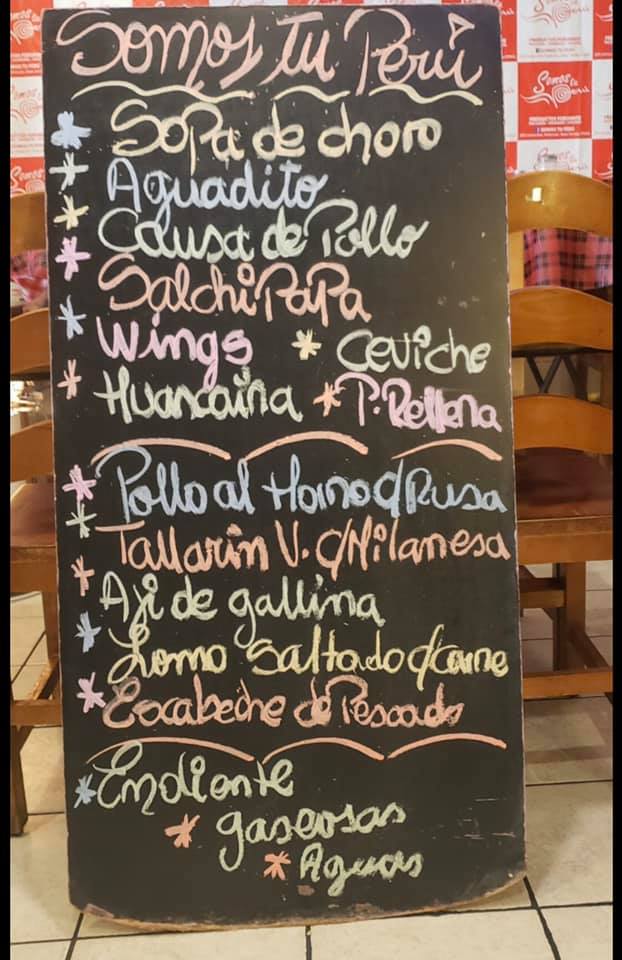 Somos tu Perú
Sopa de choro
Aguadito
Causa de Pollo
SalchiPaPa
Wings * Ceviche
Huancaina * P. Rellena
Pollo al Horno c/Rusa
Tallarin V. c/Milanesa
Aji de gallina
Lomo Saltado c/carne
Escabeche de Pescado
Emoliente
* gaseosas
* Aguas